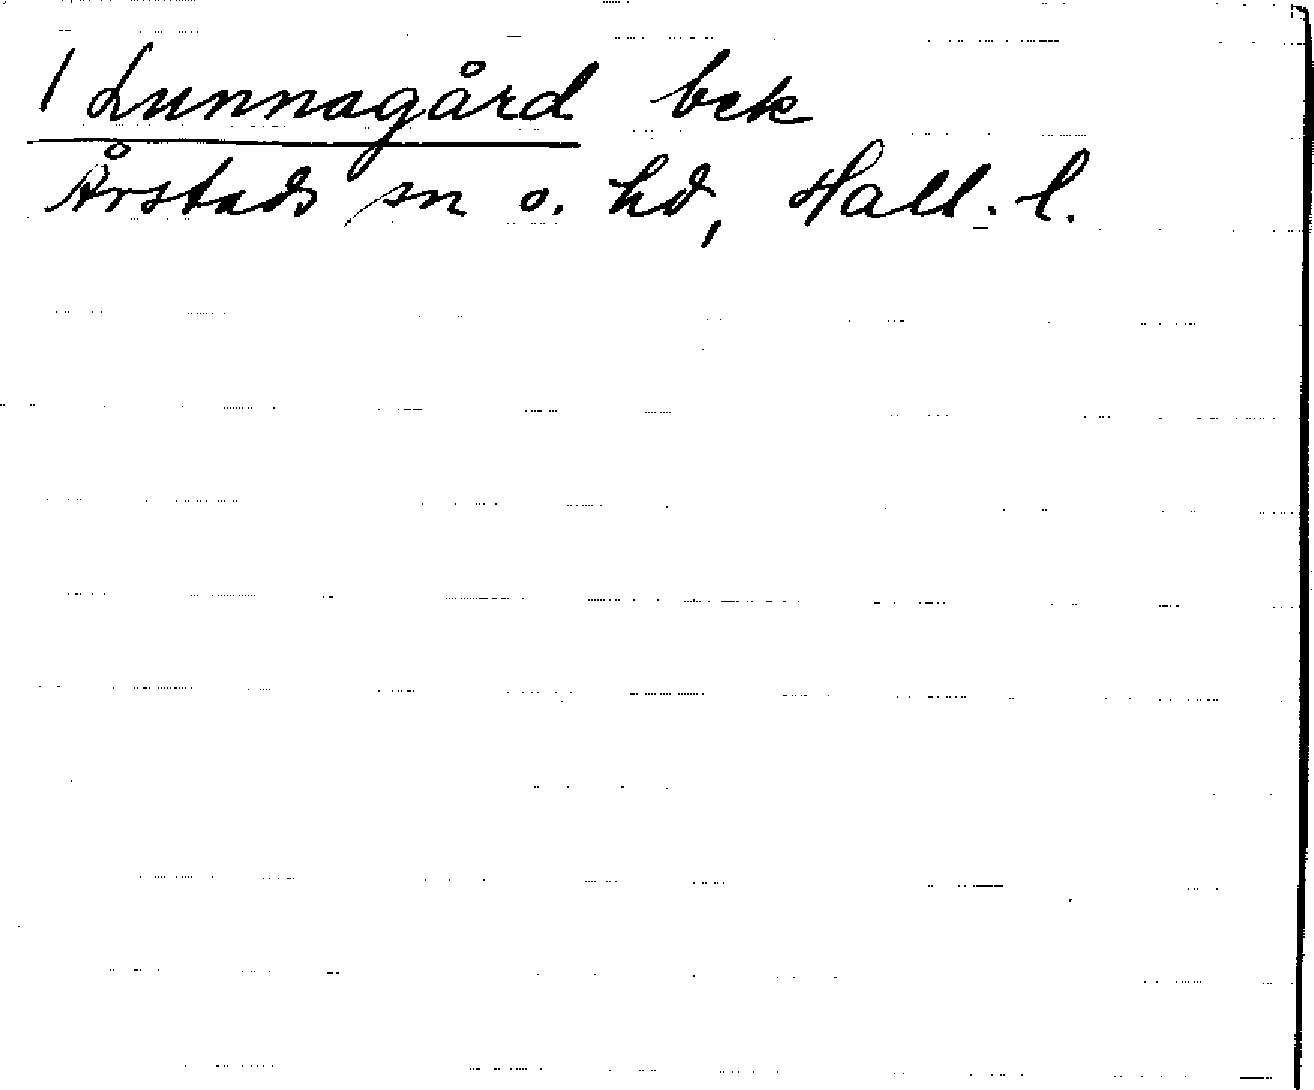 1 Lunnagård bek
Årstads sn o. hd, Hall. l.